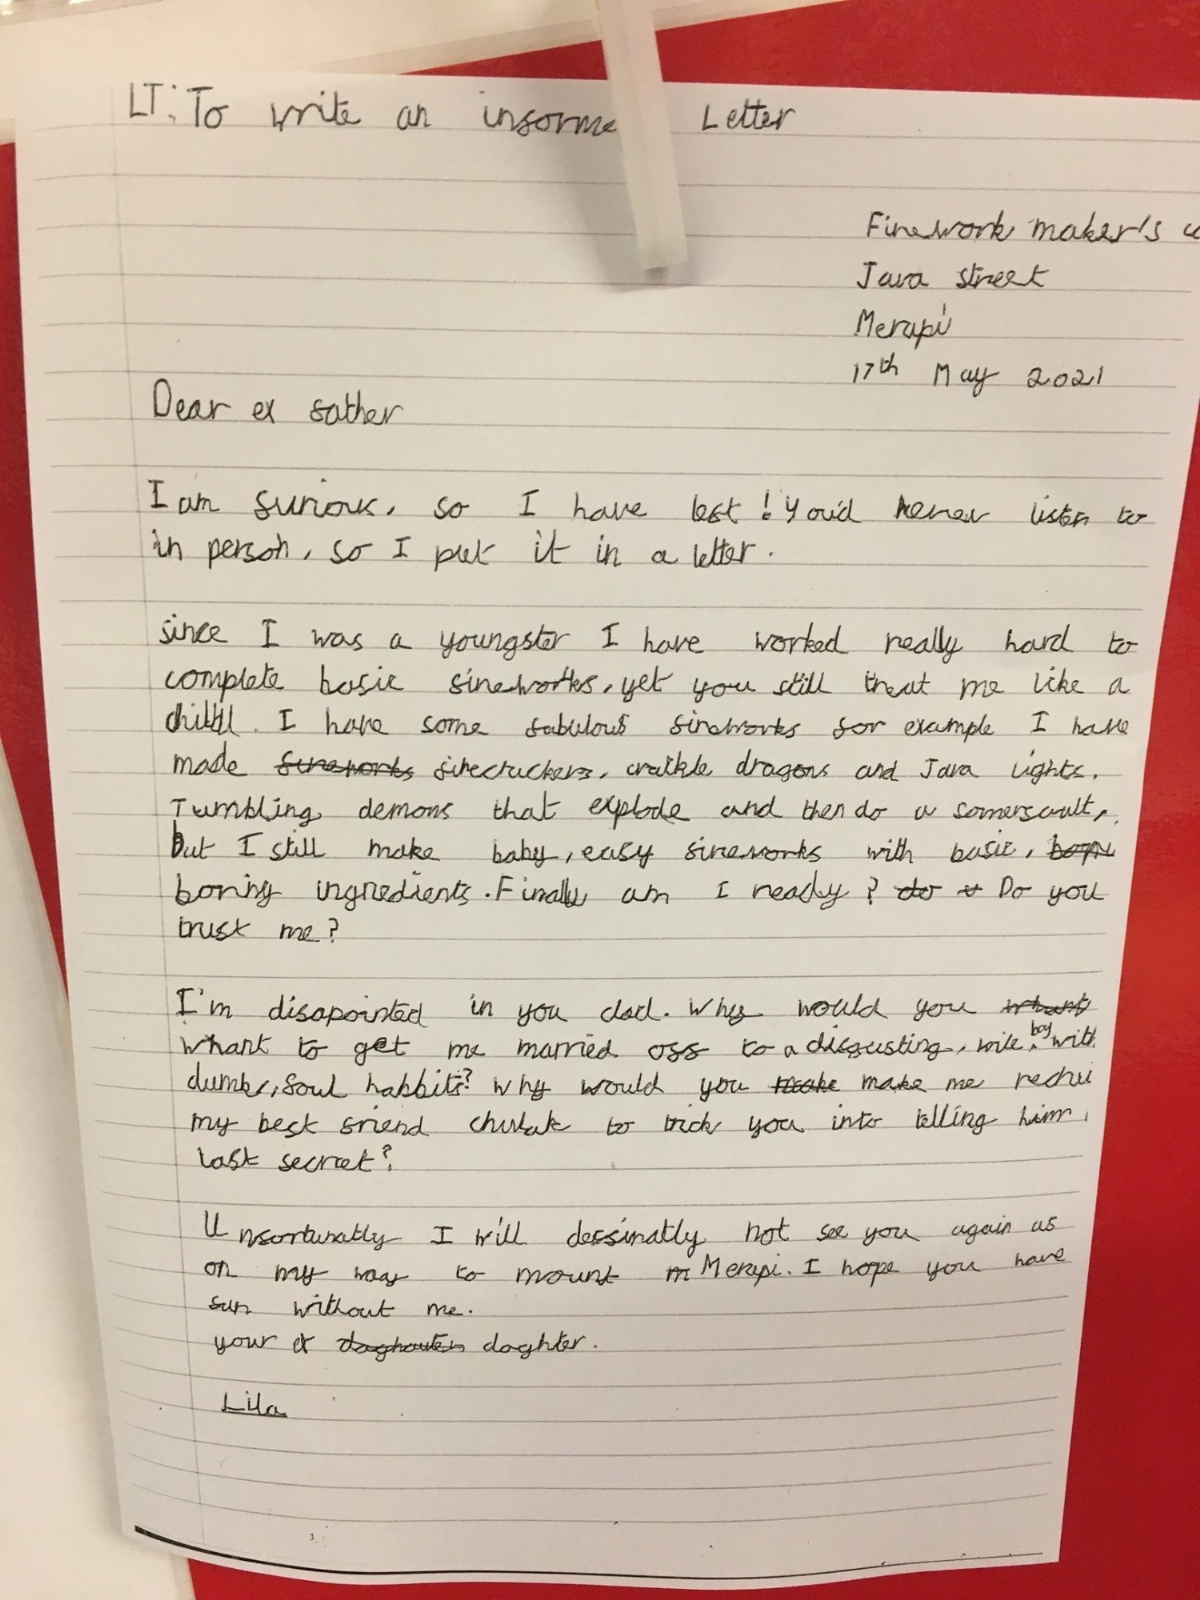 LT: To write an Letter
Firework maker's
Java street
Merapi
17th May 2021
Dear ex father
I am furious, so I have left! Youd never listen to
in person, so I put it in a letter.
since I was a youngster I have worked really hard to
complete basic fireworks, yet you still treat me like a
child. I have some fabulous fireworks for example I have
made fireworks firecrackers, crackle dragons and Java Lights.
Tumbling demons that explode and then do a somersault,
but I still make baby, easy fireworks with basic,
boring ingredients. Finally am I ready? do Do you
trust me?
I'm disapointed in you dad. Why would you whant
whant to get me married off to a disgusting, boy with
dumb, foul habbits? Why would you make make me
my best friend chulak to trick you into telling him
last secret?
Unfortunatly I will deffinatly not see you again as
on my way to mount m Merapi. I hope you have
fun without me.
your ex doghter.
Lila